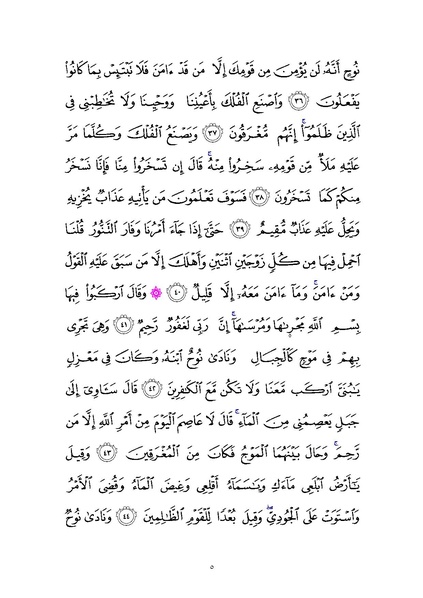 نُوحٍ أَنَّهُۥ لَن يُؤْمِنَ مِن قَوْمِكَ إِلَّا مَن قَدْ ءَامَنَ فَلَا تَبْتَئِسْ بِمَا كَانُوا۟
يَفْعَلُونَ ٣٦ وَٱصْنَعِ ٱلْفُلْكَ بِأَعْيُنِنَا وَوَحْيِنَا وَلَا تُخَٰطِبْنِى فِى
ٱلَّذِينَ ظَلَمُوٓا۟ ۚ إِنَّهُم مُّغْرَقُونَ ٣٧ وَيَصْنَعُ ٱلْفُلْكَ وَكُلَّمَا مَرَّ
عَلَيْهِ مَلَأٌ مِّن قَوْمِهِۦ سَخِرُوا۟ مِنْهُ ۚ قَالَ إِن تَسْخَرُوا۟ مِنَّا فَإِنَّا نَسْخَرُ
مِنكُمْ كَمَا تَسْخَرُونَ ٣٨ فَسَوْفَ تَعْلَمُونَ مَن يَأْتِيهِ عَذَابٌ يُخْزِيهِ
وَيَحِلُّ عَلَيْهِ عَذَابٌ مُّقِيمٌ ٣٩ حَتَّىٰٓ إِذَا جَآءَ أَمْرُنَا وَفَارَ ٱلتَّنُّورُ قُلْنَا
ٱحْمِلْ فِيهَا مِن كُلٍّ زَوْجَيْنِ ٱثْنَيْنِ وَأَهْلَكَ إِلَّا مَن سَبَقَ عَلَيْهِ ٱلْقَوْلُ
وَمَنْ ءَامَنَ ۚ وَمَآ ءَامَنَ مَعَهُۥٓ إِلَّا قَلِيلٌ ٤٠ ۞ وَقَالَ ٱرْكَبُوا۟ فِيهَا
بِسْمِ ٱللَّهِ مَجْر۪ىٰهَا وَمُرْسَىٰهَآ ۚ إِنَّ رَبِّى لَغَفُورٌ رَّحِيمٌ ٤١ وَهِىَ تَجْرِى
بِهِمْ فِى مَوْجٍ كَٱلْجِبَالِ وَنَادَىٰ نُوحٌ ٱبْنَهُۥ وَكَانَ فِى مَعْزِلٍ
يَٰبُنَىَّ ٱرْكَب مَّعَنَا وَلَا تَكُن مَّعَ ٱلْكَٰفِرِينَ ٤٢ قَالَ سَـَٔاوِىٓ إِلَىٰ
جَبَلٍ يَعْصِمُنِى مِنَ ٱلْمَآءِ ۚ قَالَ لَا عَاصِمَ ٱلْيَوْمَ مِنْ أَمْرِ ٱللَّهِ إِلَّا مَن
رَّحِمَ ۚ وَحَالَ بَيْنَهُمَا ٱلْمَوْجُ فَكَانَ مِنَ ٱلْمُغْرَقِينَ ٤٣ وَقِيلَ
يَٰٓأَرْضُ ٱبْلَعِى مَآءَكِ وَيَٰسَمَآءُ أَقْلِعِى وَغِيضَ ٱلْمَآءُ وَقُضِىَ ٱلْأَمْرُ
وَٱسْتَوَتْ عَلَى ٱلْجُودِىِّ ۖ وَقِيلَ بُعْدًا لِّلْقَوْمِ ٱلظَّٰلِمِينَ ٤٤ وَنَادَىٰ نُوحٌ
٥